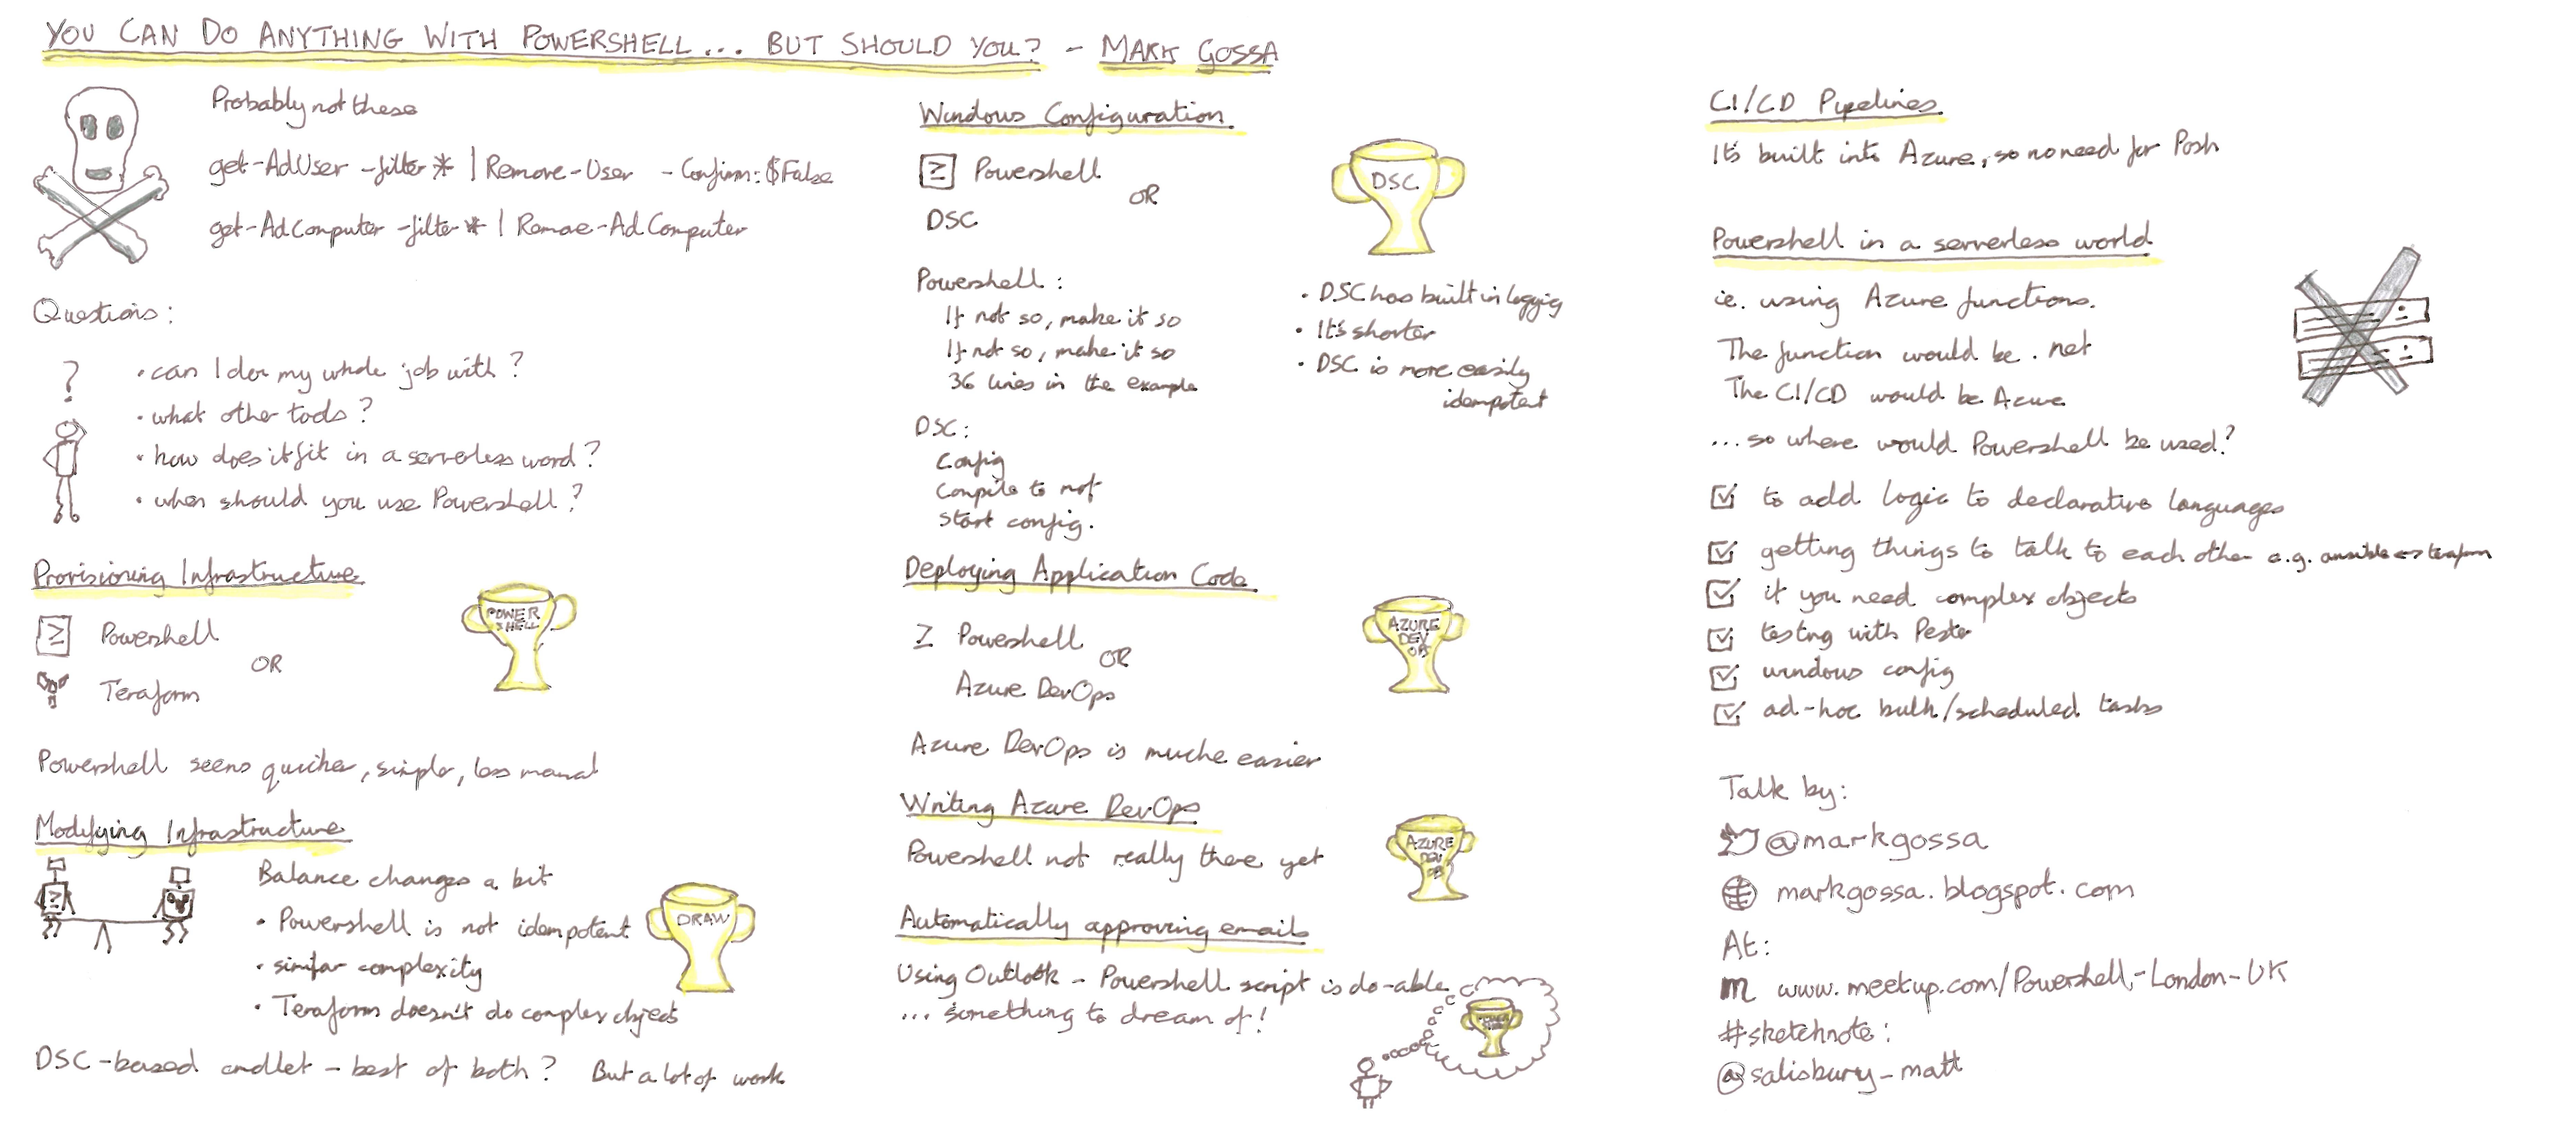 YOU CAN DO ANYTHING WITH POWERSHELL... BUT SHOULD YOU? - MARK GOSSA
Probably not these
get-AdUser -filter * | Remove-User -Confirm:$False
get-AdComputer -filter * | Remove-AdComputer
Questions:
?
• can I do my whole job with?
• what other tools?
• how does it fit in a serverless word?
• when should you use Powershell?
Provisioning Infrastructure
Powershell
OR
Teraform
POWER
SHELL
Powershell seems quicker, simpler, less manual
Modifying Infrastructure
Balance changes a bit
• Powershell is not idempotent
• similar complexity
• Teraform doesn't do complex objects
DRAW
DSC-based cmdlet - best of both? But a lot of work
Windows Configuration
Powershell
OR
DSC
DSC
Powershell:
If not so, make it so
If not so, make it so
36 lines in the example
• DSC has built in logging
• It's shorter
• DSC is more easily
idempotent
DSC:
Config
Compile to mof
Start config.
Deploying Application Code
Powershell
OR
Azure DevOps
AZURE
DEV
OPS
Azure DevOps is muche easier
Writing Azure DevOps
Powershell not really there yet
AZURE
DEV
OPS
Automatically approving emails
Using Outlook - Powershell script is do-able
... something to dream of!
POWER
SHELL
CI/CD Pipelines
It's built into Azure, so no need for Posh
Powershell in a serverless world
ie. using Azure functions.
The function would be .net
The CI/CD would be Azure
...so where would Powershell be used?
to add logic to declarative languages
getting things to talk to each other e.g. ansible <-> teraform
if you need complex objects
testing with Pester
windows config
ad-hoc bulk/scheduled tasks
Talk by:
@markgossa
markgossa.blogspot.com
At:
m www.meetup.com/Powershell-London-UK
#sketchnote:
@salisbury_matt